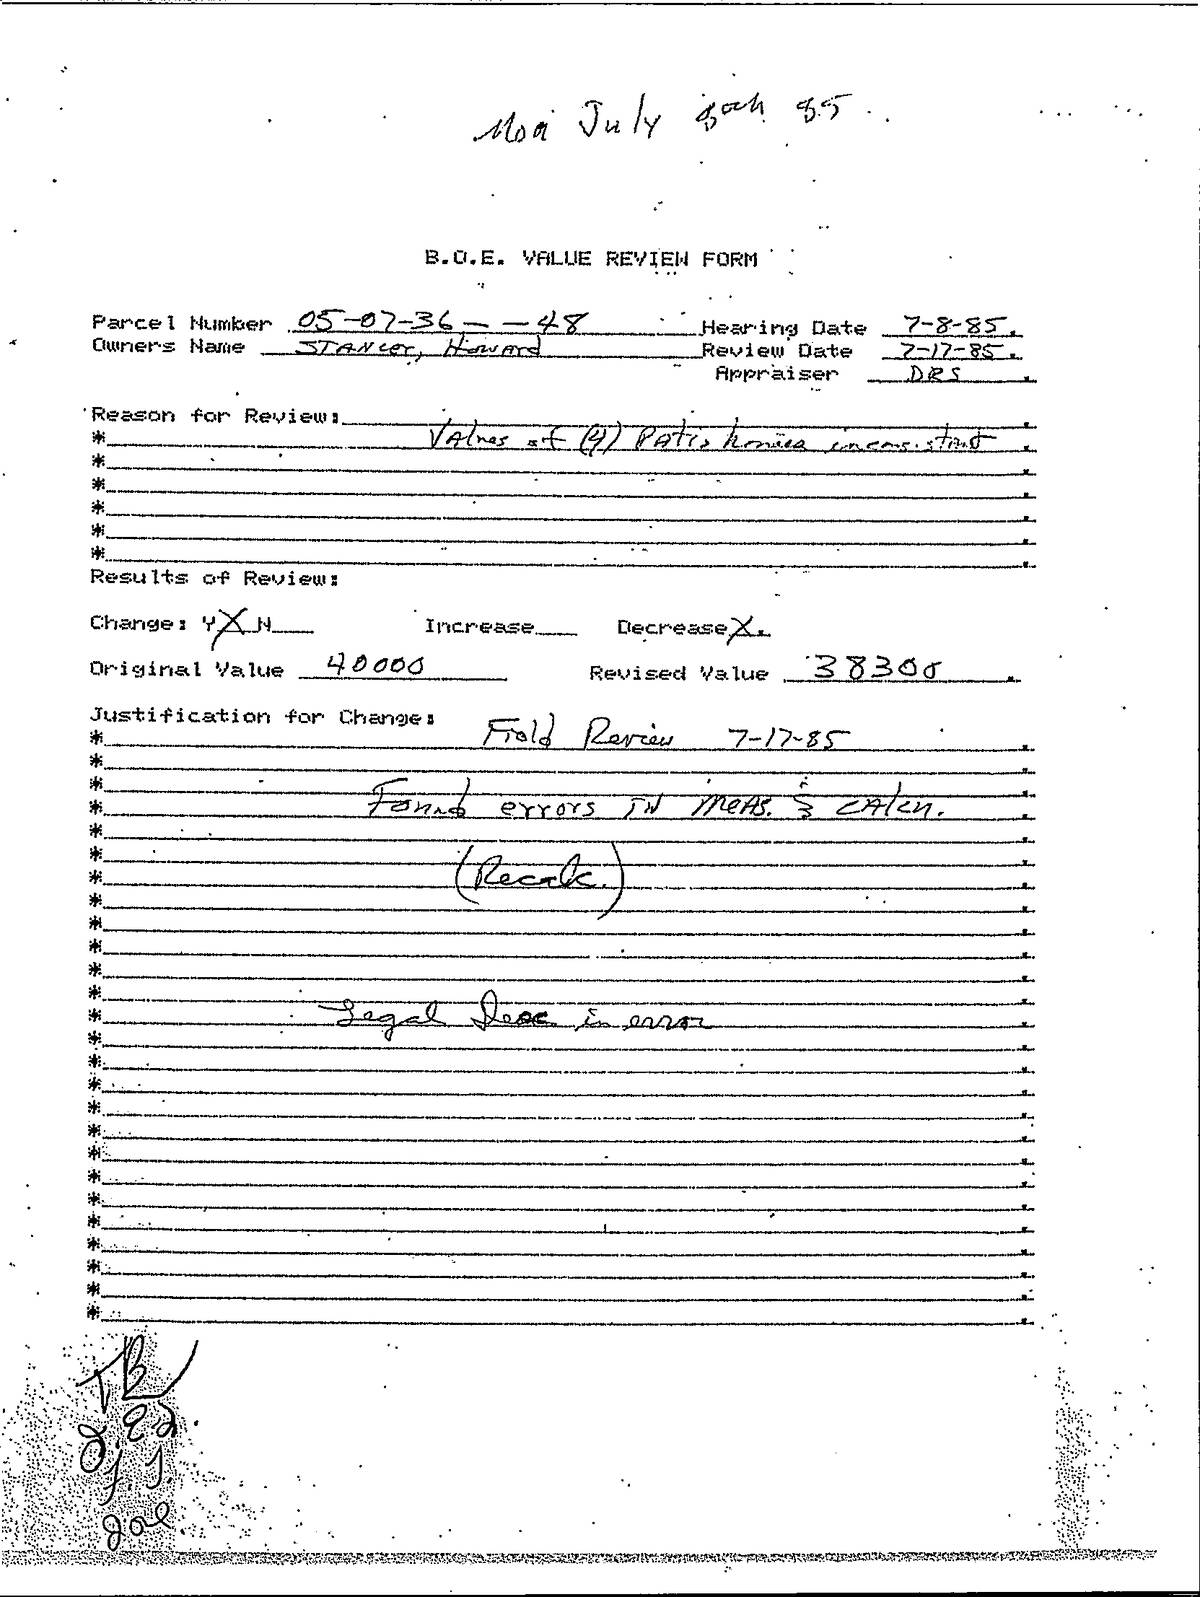 Mon July 8th 85
B.O.E. VALUE REVIEW FORM
Parcel Number 05-07-36 — — 48 Hearing Date 7-8-85.
Owners Name Howard Review Date 7-17-85.
Appraiser DRS
Reason for Review:
* Values of (4) Patio homes inconsistant
*
*
*
*
*
Results of Review:
Change: Y X N Increase Decrease X.
Original Value 40000 Revised Value 38300
Justification for Change:
* Field Review 7-17-85
*
*
* Found errors IN MEAS. & CALCN.
*
*
* (Recalc.)
*
*
*
*
*
* Legal Desc in error
*
*
*
*
*
*
*
*
*
*
*
*
*
TB
J. J.
Joe